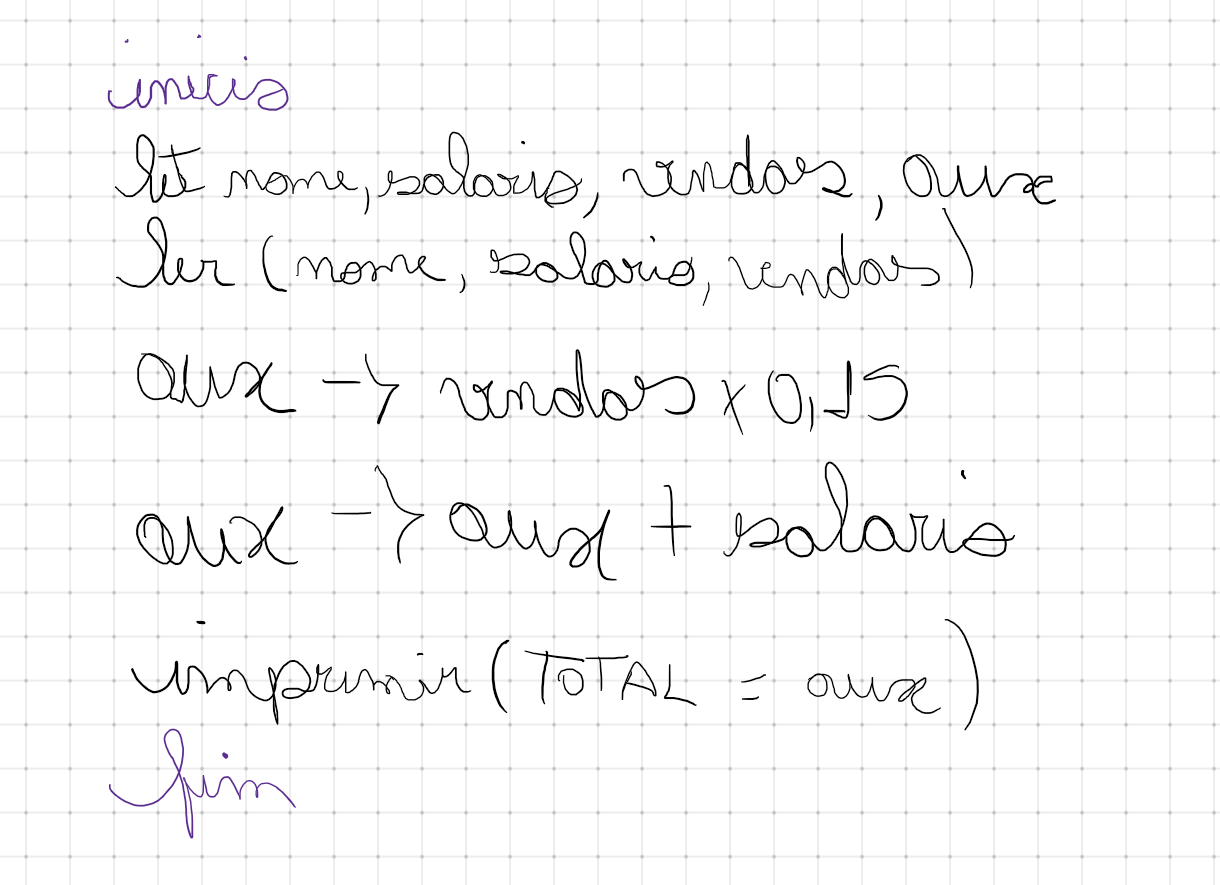 inicio
let nome, salario, vendas, aux
ler (nome, salario, vendas)
aux -> vendas x 0,15
aux -> aux + salario
imprimir (TOTAL = aux)
fim